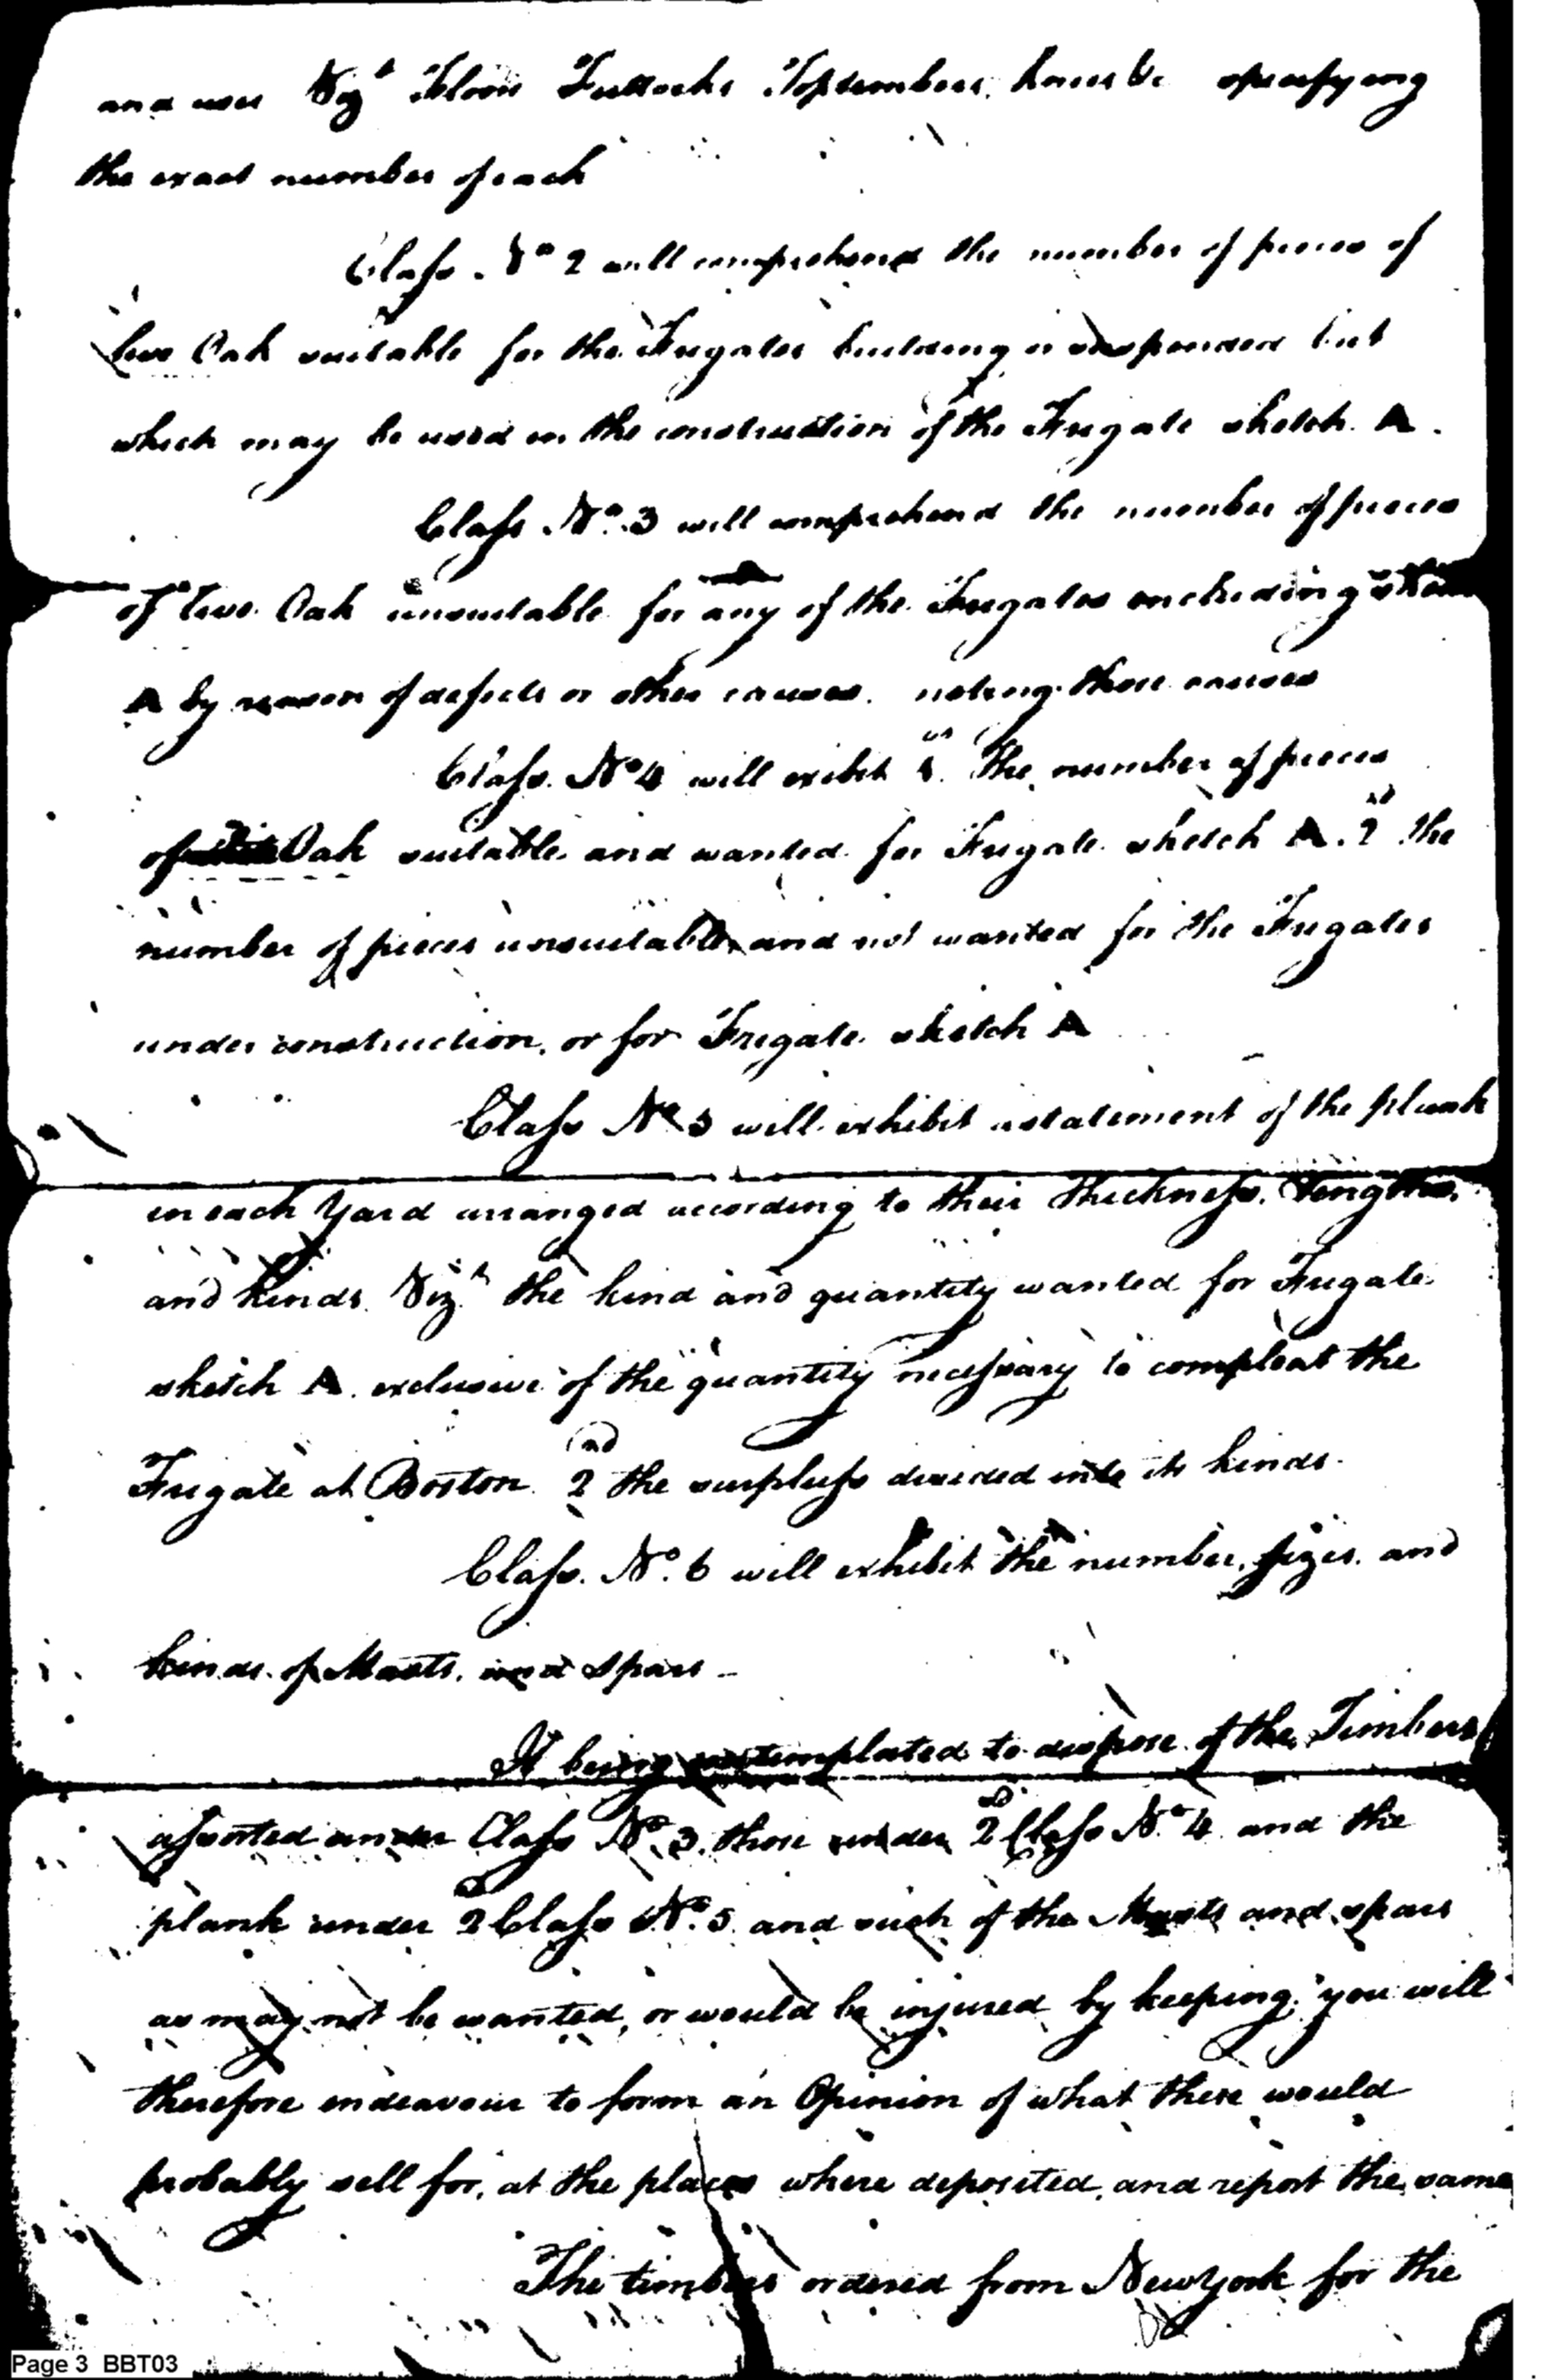 and uses Vizt Floor Futtocks Toptimbers, knees &c specifying
the exact number of each
Class. No 2 will comprehend the number of pieces of
live Oak suitable for the Frigates building or suspended but
which may be used in the construction of the Frigate sketch. A.
Class No. 3 will comprehend the number of pieces
of live Oak unsuitable for any of the Frigates including
A by reason of defects or other causes. noting those causes
Class. No 4 will exibit 1st The number of pieces
of Oak suitable and wanted for Frigate sketch A. 2d the
number of pieces unsuitable and not wanted for the Frigates
under construction, or for Frigate sketch A
Class No 5 will exhibit a statement of the plank
in each Yard arranged according to their thickness. Lengths.
and kinds. Vizt the kind and quantity wanted for Frigate
sketch A. exclusive of the quantity necessary to compleat the
Frigate at Boston. 2nd the surpluss divided into its kinds.
Class. No. 6 will exhibit the number, sizes. and
kinds. of Masts. and spars -
It being contemplated to dispose of the Timbers
assorted under Class No. 3. those under 2d Class No. 4 and the
plank under 2 Class No. 5 and such of the Masts and spars
as may not be wanted, or would be injured by keeping; you will
therefore endeavour to form an Opinion of what these would
probably sell for, at the places where deposited, and report the same
The timbers ordered from New York for the
Page 3 BBT03